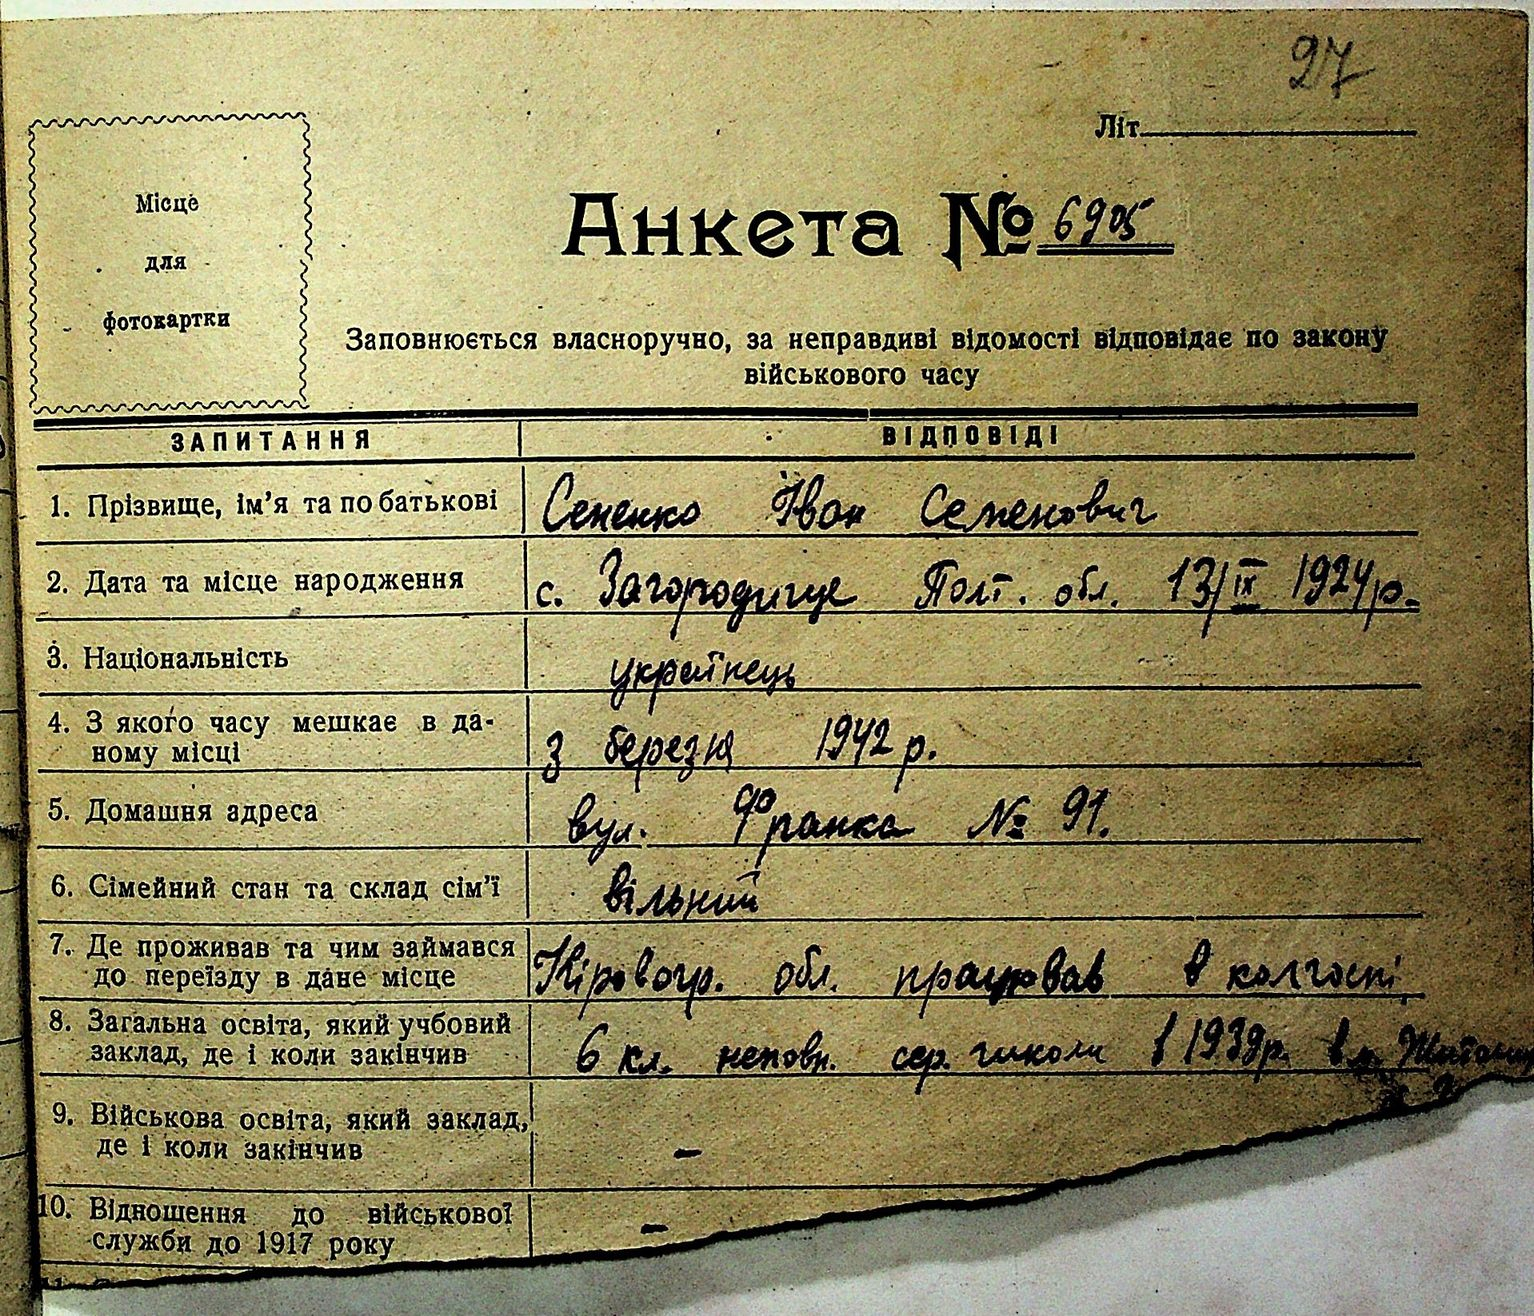 97
Літ.
Місце
для
фотокартки
Анкета № 6905
Заповнюється власноручно, за неправдиві відомості відповідає по закону
військового часу
ЗАПИТАННЯ ВІДПОВІДІ
1. Прізвище, ім'я та по батькові Сененко Іван Семенович
2. Дата та місце народження с. Загородище Полт. обл. 13/ІХ 1924 р.
3. Національність українець
4. З якого часу мешкає в да-
ному місці З березня 1942 р.
5. Домашня адреса вул. Франка № 91.
6. Сімейний стан та склад сім'ї вільний
7. Де проживав та чим займався
до переїзду в дане місце Кіровогр. обл. працював в колгоспі
8. Загальна освіта, який учбовий
заклад, де і коли закінчив 6 кл. неповн. сер. школи в 1939 р. в м.
9. Військова освіта, який заклад,
де і коли закінчив –
10. Відношення до військової
служби до 1917 року –